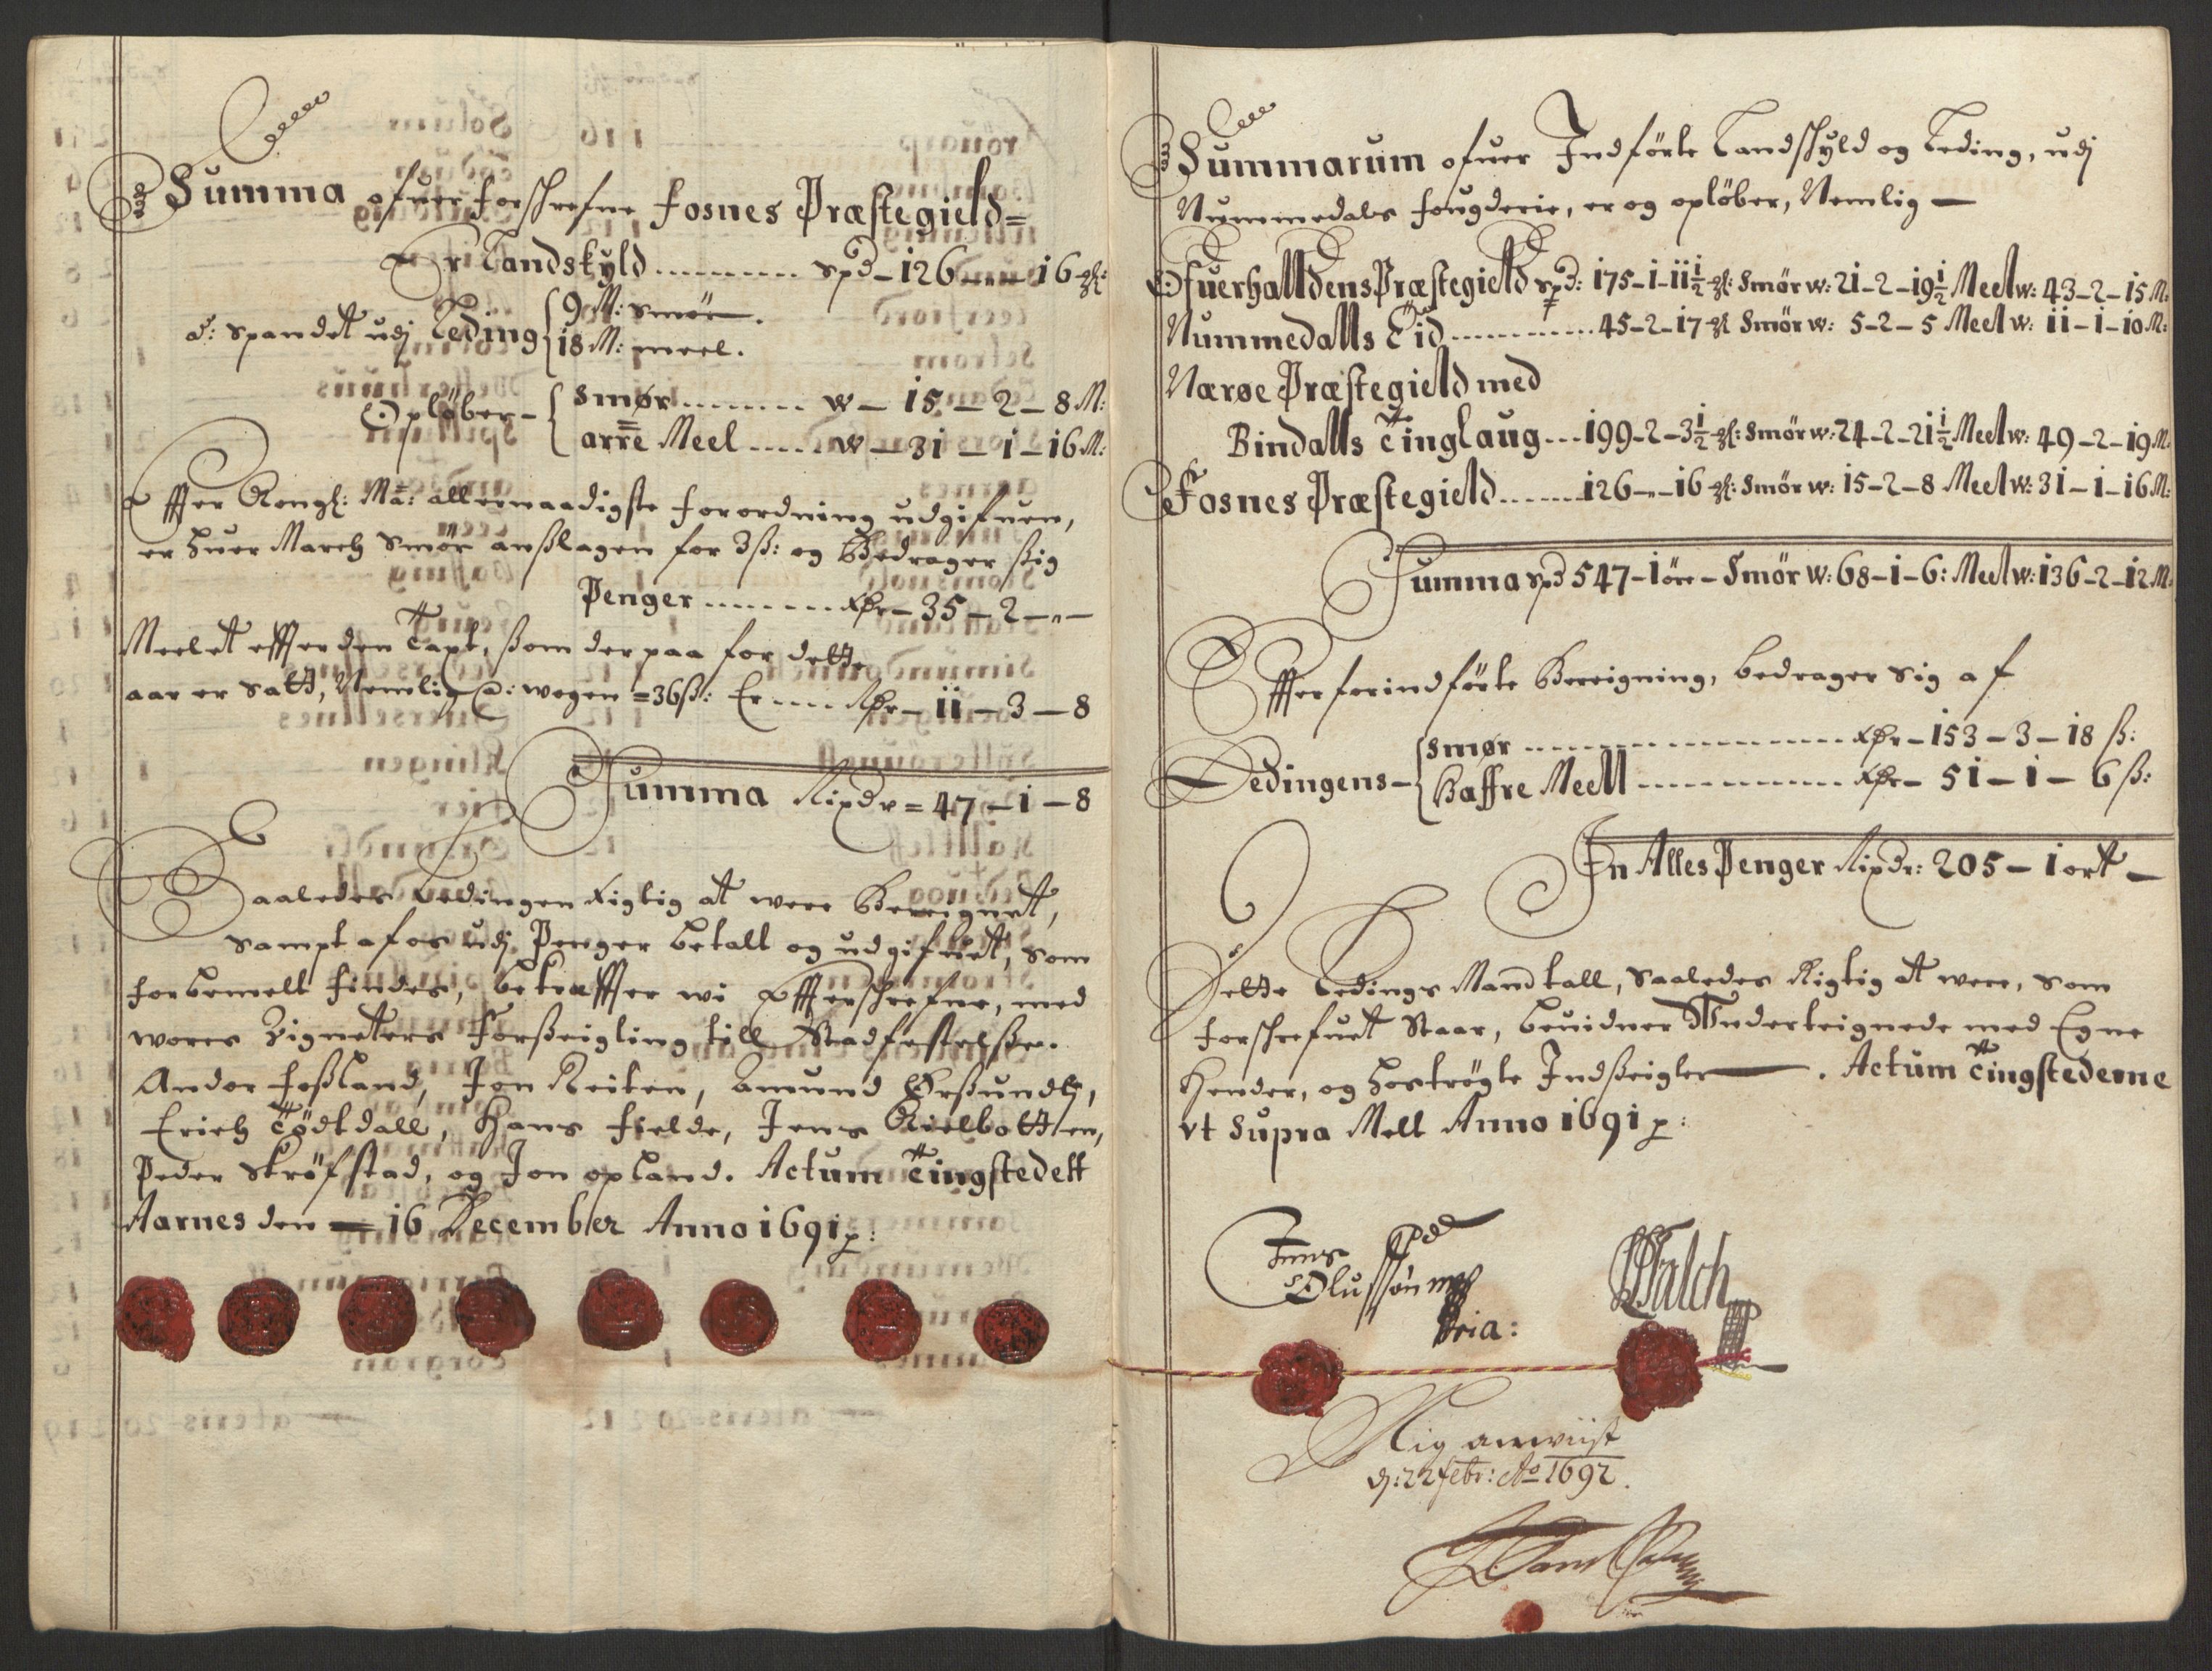 Summa ofuer forschrefne Fosnes Præstegield=
Er Landskÿld .......... spd - 126 - „ - 16 
a: Spandet udj Leding 9 M: smør.
18 M: meel.
Opløber - smør ........ w - 15 - 2 - 8 M:
arre Meel ..... w - 31 - 1 - 16 M:
Effter Kongl: Ma: allernaadigste forordning udgifuen,
er huer March Smör anßlagen for 3 ß: og Bedrager ßig
Penger ........ Rdr - 35 - 2 - „ -
Meelet effter den Taxt, ßom der paa for dette
aar er satt, Nemlig @: wogen = 36 ß: Er .... Rdr - 11 - 3 - 8
Summa Rixdr = 47 - 1 - 8
Saaledes Ledingen Rigtig at were Bereignett,
sampt af os udj Penger betalt og udgifuet, som
forbemelt findes, bekreffter wi Effterschrefne, med
wores Zigneters Forßeigling till Stadfestelße.
Andor Foßland, Jon Reiten, Amund Ørßundli,
Erich Tödtdall, Hans Fielde, Jens Kielbotten,
Peder Skröfstad, og Jon opland. Actum Tingstedett
Aarnes den 16 December Anno 1691 p:
Summarum ofuer Indförte Landskÿld og Leding, udj
Nummedals fougderie, er og oplöber, Nemlig -
Ofuerhalldens Præstegield spd: 175 - 1 - 11½ : Smör w: 21 - 2 - 19½ Meel w: 43 - 2 - 15 M:
Nummedalls Eid ............ 45 - 2 - 17 Smör w: 5 - 2 - 5 Meel w: 11 - 1 - 10 M:
Nærøe Præstegield med
Bindalls Tinglaug ... 199 - 2 - 3½ : Smör w: 24 - 2 - 21½ Meel w: 49 - 2 - 19 M:
Fosnes Præstegield ....... 126 - „ - 16 : Smör w: 15 - 2 - 8 Meel w: 31 - 1 - 16 M:
Summa spd 547 - 1 öre - Smör w: 68 - 1 - 6: Meel w: 136 - 2 - 12 M:
Effter forindförte Bereigning, bedrager sig af
Ledingens - smør .................... Rdr - 153 - 3 - 18 ß:
Haffre Meell ............. Rdr - 51 - 1 - 6 ß:
In Alles Penger Rixdr: 205 - 1 ort -
Dette Ledings Mandtall, saaledes Rigtig at were, som
forschrefuet Staar, beuidner Wi Underteignede med Egne
Hender, og hoströgte Indßeigler. Actum Tingstederne
Vt Supra Mell Anno 1691 p:
Jens
Olufsøn
pria:
Falch
Rig anwiist
d: 22 Febr: Ao 1692.